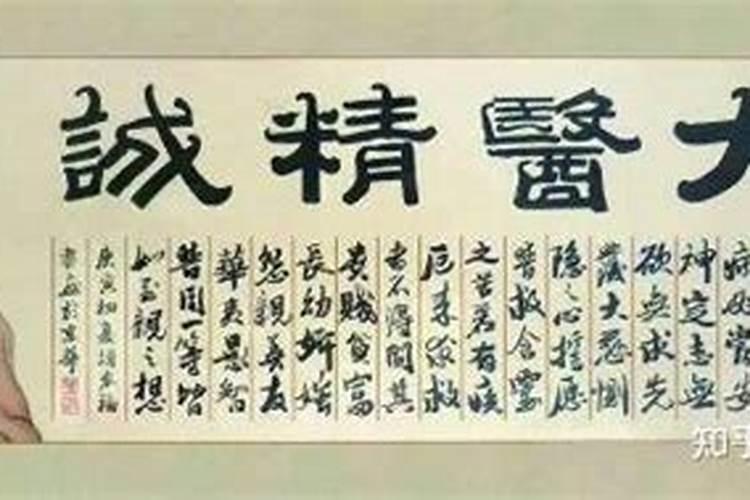 大醫精誠
病必當安
神定志無
欲無求先
發大慈惻
隐之心誓愿
普救含靈
之苦若有疾
厄来求救
者不得問其
貴賤貧富
長幼妍媸
怨親善友
華夷愚智
普同一等皆
如至親之想
庚寅初夏
於京華
知乎